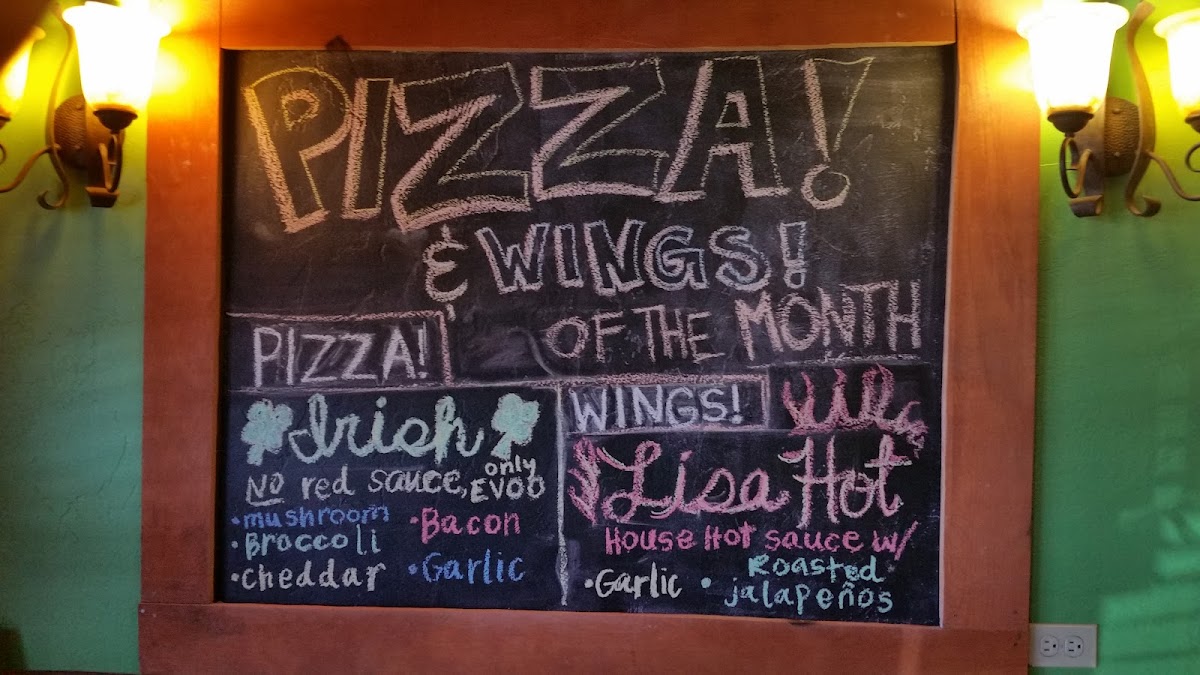 PIZZA!
& WINGS!
OF THE MONTH
PIZZA!
Irish
NO red sauce, only EVOO
•mushroom
•Broccoli
•cheddar
•Bacon
•Garlic
WINGS!
Lisa Hot
House Hot sauce w/
•Garlic
• Roasted
jalapeños